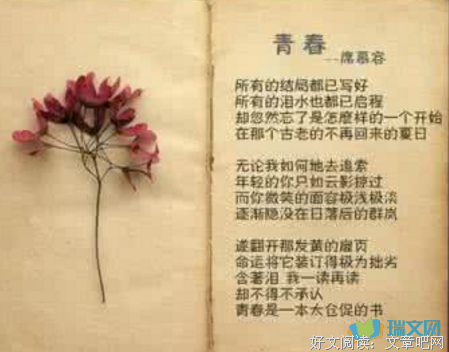 青春
--席慕容
所有的结局都已写好
所有的泪水也都已启程
却忽然忘了是怎麽样的一个开始
在那个古老的不再回来的夏日
无论我如何地去追索
年轻的你只如云影掠过
而你微笑的面容极浅极淡
逐渐隐没在日落后的群岚
遂翻开那发黄的扉页
命运将它装订得极为拙劣
含著泪 我一读再读
却不得不承认
青春是一本太仓促的书
瑞文网
好文阅读：文章吧网